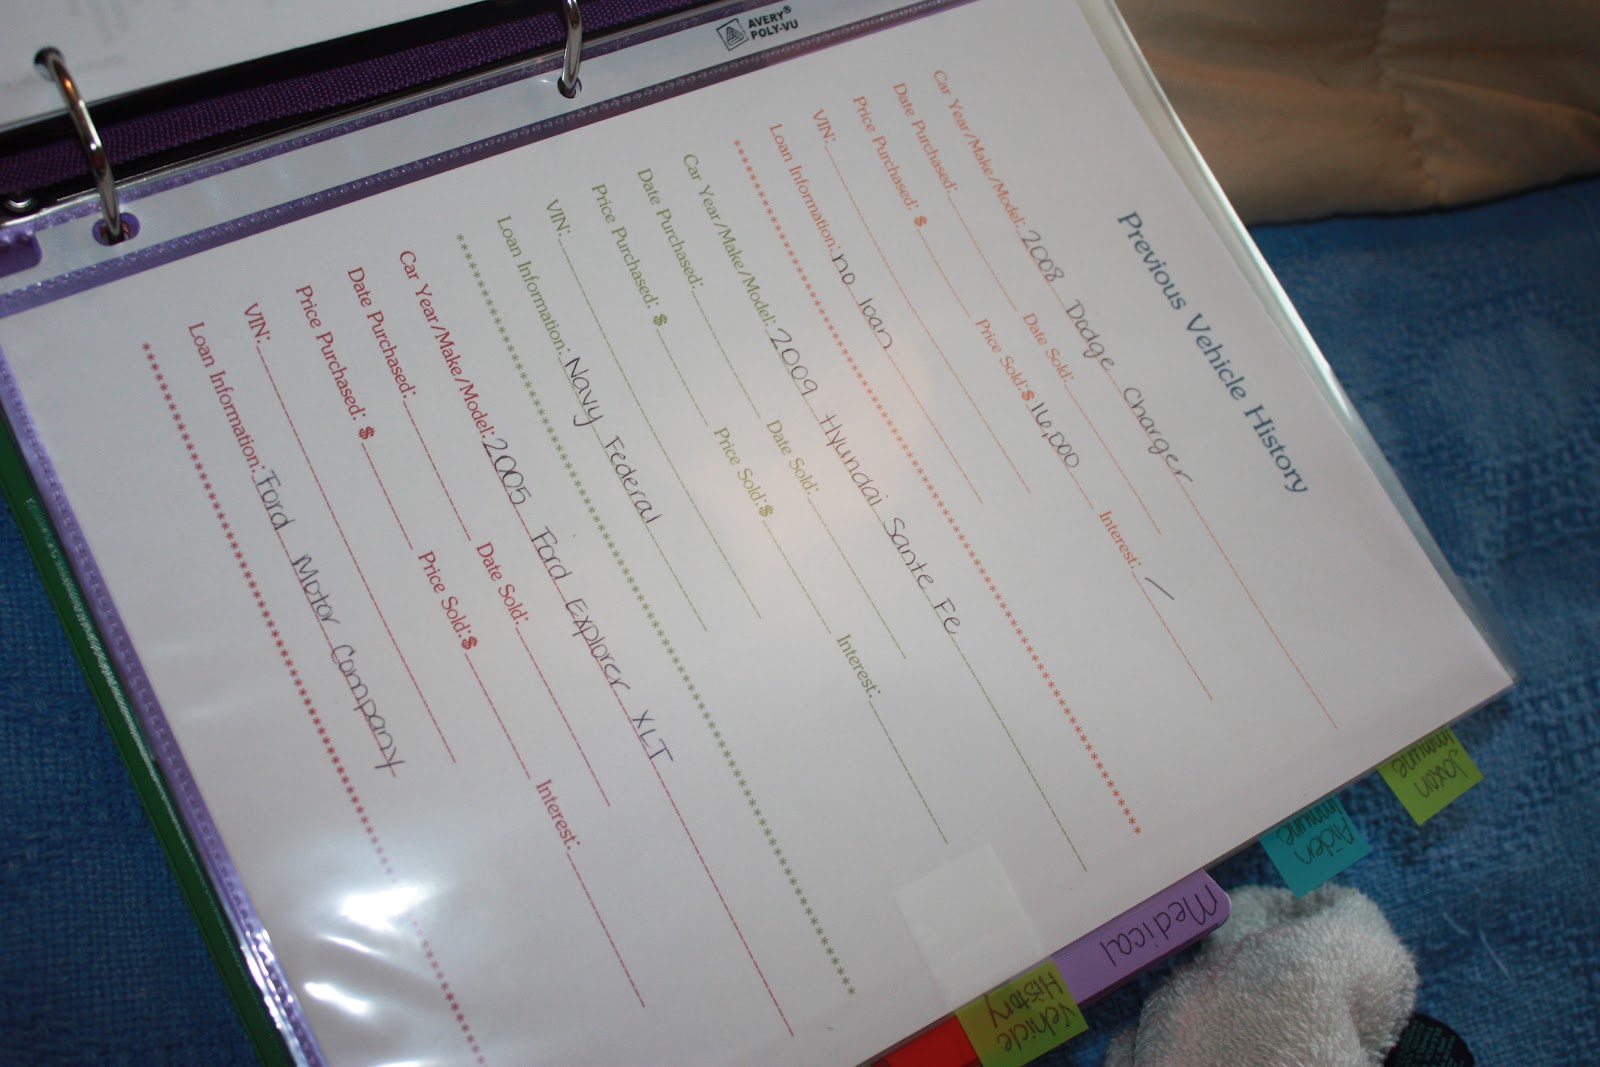 AVERY®
POLY-VU
Previous Vehicle History
Car Year/Make/Model: 2008 Dodge Charger
Date Purchased: Date Sold:
Price Purchased: $ Price Sold: $ 16,000 Interest: /
VIN:
Loan Information: no loan
Car Year/Make/Model: 2009 Hyundai Sante Fe
Date Purchased: Date Sold:
Price Purchased: $ Price Sold: $ Interest:
VIN:
Loan Information: Navy Federal
Car Year/Make/Model: 2005 Ford Explorer XLT
Date Purchased: Date Sold:
Price Purchased: $ Price Sold: $ Interest:
VIN:
Loan Information: Ford Motor Company
Jaxon
Immune
Aiden
immune
Medical
Vehicle
History